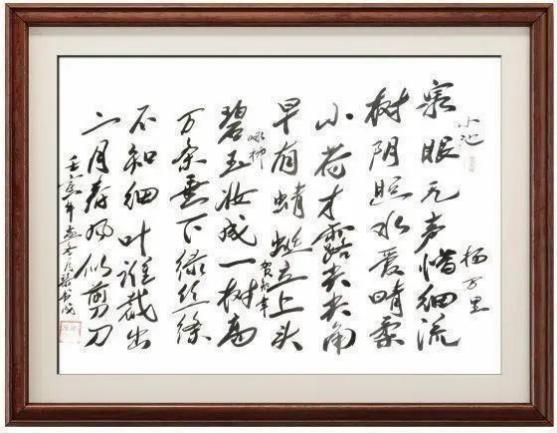 小池 杨万里
泉眼无声惜细流
树阴照水爱晴柔
小荷才露尖尖角
早有蜻蜓立上头
咏柳 贺知章
碧玉妆成一树高
万条垂下绿丝绦
不知细叶谁裁出
二月春风似剪刀
壬寅年